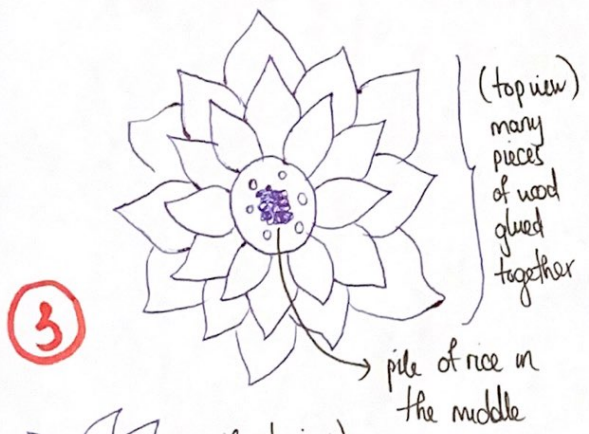 (top view)
many
pieces
of wood
glued
together
3
pile of rice in
the middle